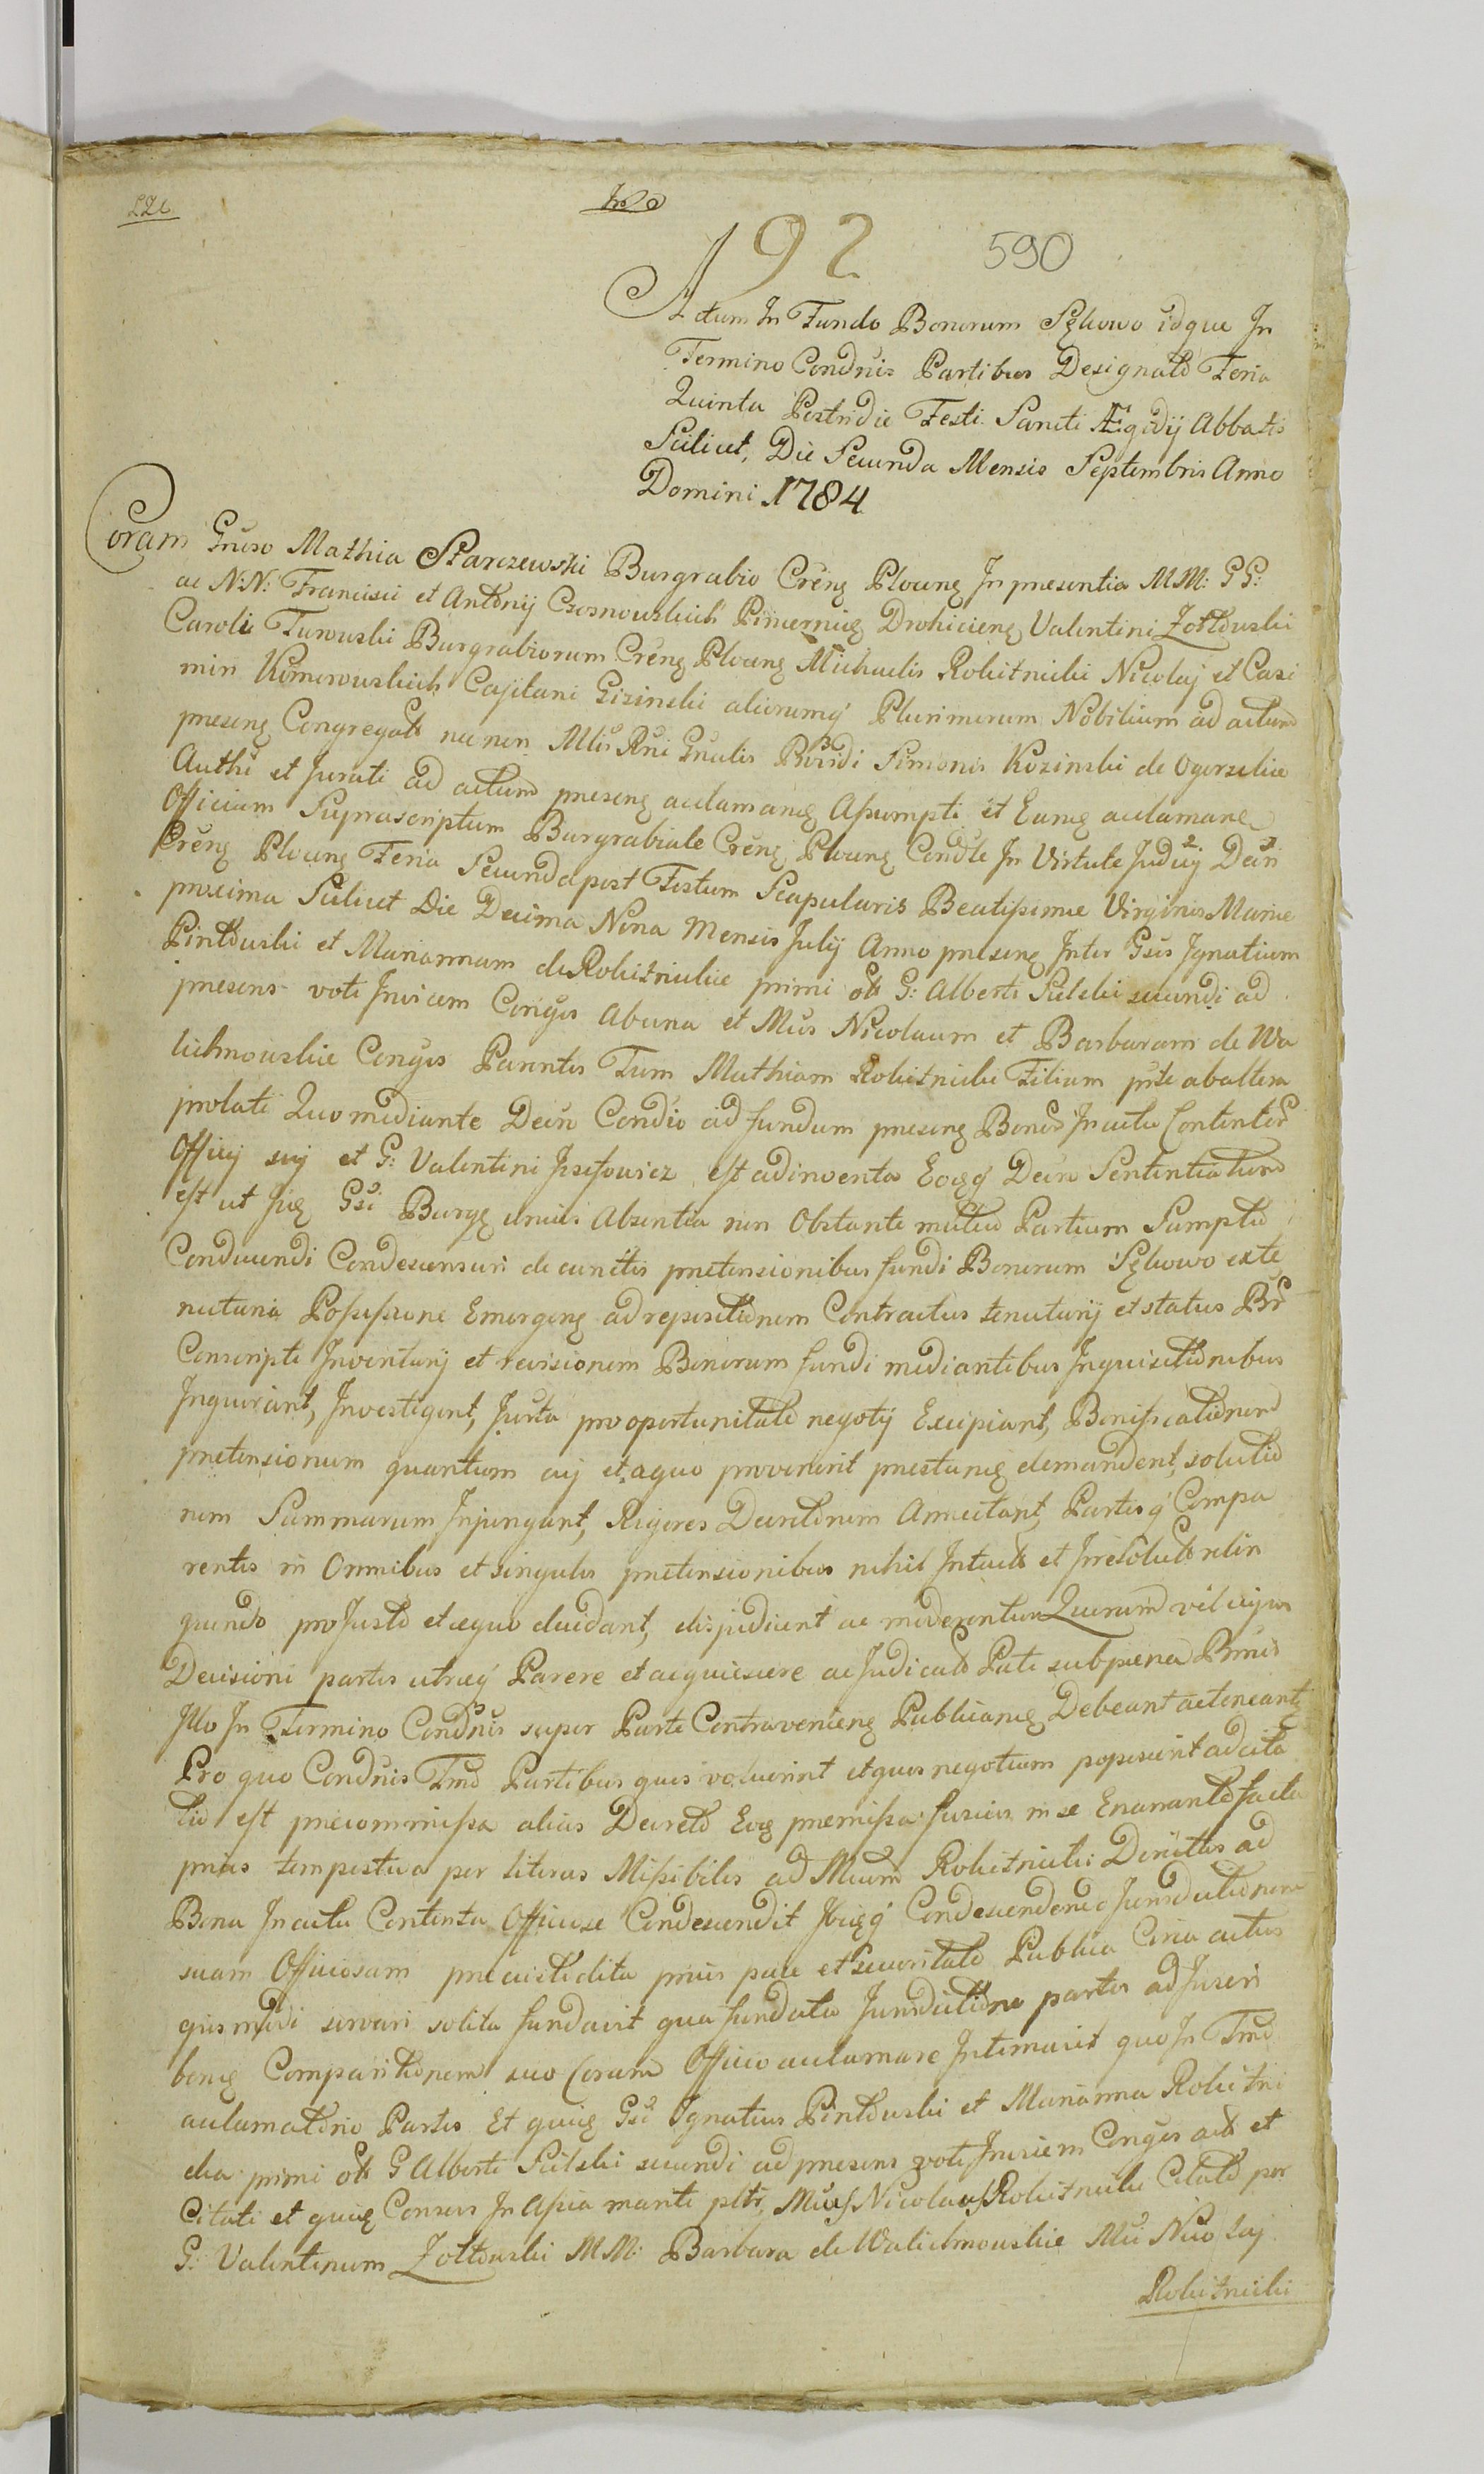 192 590
Actum In Fundo Bonorum Sękowo idque In
Termino Condnis Partibus Designato Feria
Quinta Postridie Festi Sancti Ægidij Abbatis
Scilicet, Die Secunda Mensis Septembris Anno
Domini 1784
Coram Gnroso Mathia Starczewski Burgrabio Creng Ploceng In presentia MM: GG:
ac N:N: Francisci et Antonij Czosnowskich Pincernicg Drohicieng Valentini Zołtowski
Caroli Turowski Burgrabiorum Creng Ploceng Michaelis Rokitnicki Nicolaj et Casi
miri Komorowskich Cajetani Gizinski aliorumq Plurimorum Nobilium ad actum
preseng Congregatt nec non Mlis Rni Gnalis Simonis Kozinski de Ogorzelice
Authi et Jurati ad actum preseng aclamang Assumpti et Eumg aclamane
Officium Suprascriptum Burgrabiale Creng Ploceng Condle In Virtute Judicij Decri
Creng Ploceng Feria Secunda post Festum Scapularis Beatissime Virginis Marie
proxima Scilicet Die Decima Nona Mensis Julij Anno preseng Inter Gsos Ignatium
Pintowski et Mariannam de Rokitnickie primi ott G: Alberti Sulski secundi ad
presens voti Invicem Conjges ab una et Mcos Nicolaum et Barbaram de Wa
lichnowskie Conjges Parentes Tum Mathiam Rokitnicki Filium prte ab altera
prolati Quo mediante Decro Condio ad fundum preseng Bonor In actu Contentor
Officij sui et G: Valentini Jozefowicz est adinventa Eoqg Decro Sententiatum
est ut Judg Gsi Burgg unius Absentia non Obstante mutuo Partium Sumptu
Conducendi Condescensuri de cunctis pretensionibus fundi Bonorum Sękowo ex te
nutaria Possessione Emergeng ad repositionem Contractus tenutarij et status Br
Conscripti Inventarij et revisionem Bonorum fundi mediantibus Inquisitionibus
Inquirant, Investigent, Jurata pro oportunitate negotij Excipiant, Bonificationem
pretensionum quantum cuj et a quo provenerit prestang demandent, solutio
nem Summarum Injungant, Rigores Decretorum Annectant, Partesq Compa
rentes in Omnibus et singulis pretensionibus nihil Intactt et Iresolutt relin
quendo pro Justo et aequo decidant, disjudicent ac moderentur Quorum vel cujus
Decisioni partes utraeq Parere et acquiescere ac Judicato Pati sub pena Bnnis
Illo In Termino Condnis super Parte Contravenieng Publicang Debeant ac teneant
Pro quo Condnis Tmo Partibus quis voluerint et quis negotium poposcerit ad cita
tio est precommissa alias Decreto Eog premissa fusius in se Enarranto facta
prius tempestiva per literas Missibiles ad Mcum Rokitnicki Directas ad
Bona In actu Contenta Officiose Condescendit Ibiqg Condescendendo Jurisdictionem
suam Officiosam precustodita prius pace et Securitate Publica Circa actus
qusmodi servari solita fundavit qua fundata Jurisdictione partes ad Juseri
beng Comparitionem suo Coram Officio aclamare Intimavit quo In Tmo
aclamatorio Partes Et quidg Gsi Ignatius Pintowski et Marianna Rokitni
cka primi ott G Alberti Sulski secundi ad presens voti Inviem Conjges actt et
Citati et quidg Consors In Assia mariti pltr, Mcus Nicolaus Rokitnicki Citato per
G: Valentinum Zołtowski MM: Barbara de Walichnowskie Mci Nicolaj
Rokitnicki